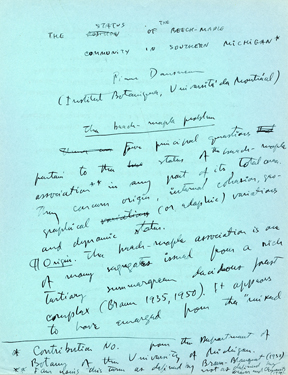 STATUS THE
THE POSITION OF BEECH-MAPLE
COMMUNITY IN SOUTHERN MICHIGAN*
Pierre Dansereau
(Institut Botanique, Université de Montréal)
The beech-maple problem
There are four principal questions
pertain to the status of the beech-maple
association** in any part of its total area.
They concern origin, internal cohesion, geo-
graphical variations (or adaptive) variations
and dynamic status.
¶ Origin. The beech-maple association is one
of many segregates issued from a rich
tertiary summergreen deciduous forest
complex (Braun 1935, 1950). It appears
to have emerged from the "mixed
* Contribution No. from the Department of
Botany of the University of Michigan.
** I am using this term as defined by Braun-Blanquet (1932)
not as defined by